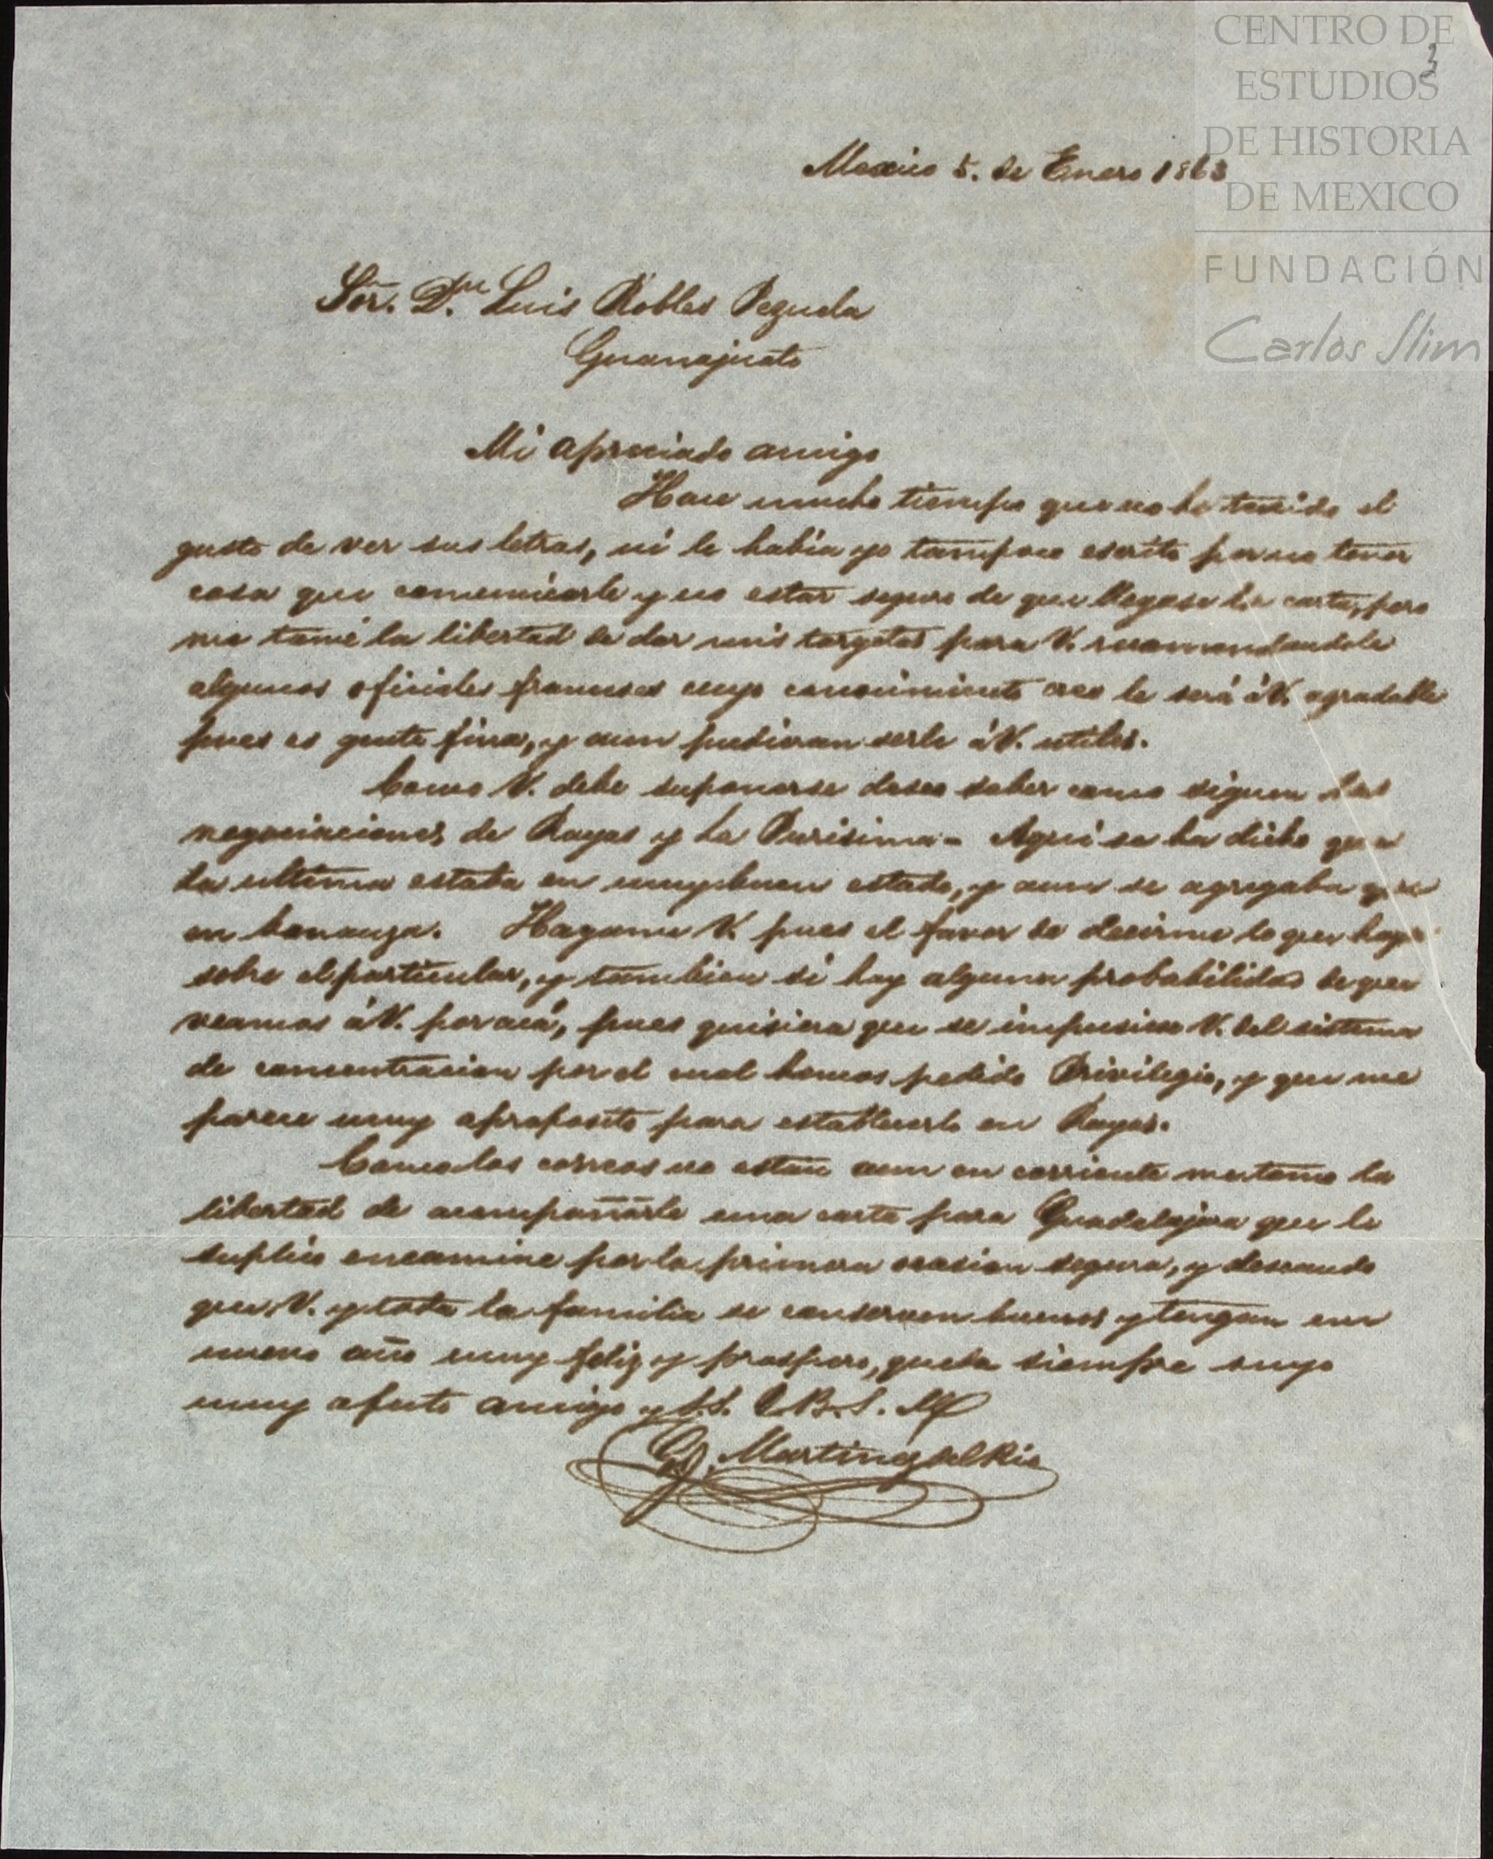 CENTRO DE
ESTUDIOS
DE HISTORIA
DE MEXICO
FUNDACIÓN
Carlos Slim
3
Mexico 5. de Enero 1863
Sõr. D.n Luis Robles Pezuela
Guanajuato
Mi apreciado amigo
Hace mucho tiempo que no he tenido el
gusto de ver sus letras, ni le habia yo tampoco escrito por no tener
cosa que comunicarle y no estar seguro de que llegase la carta, pero
me tomé la libertad de dar mis targetas para V. recomendandole
algunos oficiales franceses cuyo conocimiento creo le será á V. agradable
pues es gente fina, y aun pudieran serle á V. utiles.
Como V. debe suponerse deseo saber como siguen las
negociaciones de Rayas y La Purisima - Aqui se ha dicho que
la ultima estaba en muy buen estado, y aun se agregaba que
en bonanza. Hagame V. pues el favor de decirme lo que haya
sobre el particular, y tambien si hay alguna probabilidad de que
veamos á V. por acá, pues quisiera que se impusiese V. del sistema
de concentracion por el cual hemos pedido Privilegio, y que me
parece muy aproposito para establecerlo en Rayas.
Como los correos no estan aun en corriente me tomo la
libertad de acompañarle una carta para Guadalajara que le
suplico encamine por la primera ocasion segura, y deseando
que V. y toda la familia se conserven buenos y tengan un
nuevo año muy feliz y prospero, queda siempre suyo
muy afecto amigo y S.S. Q.B.S.M
G. Martinez del Rio